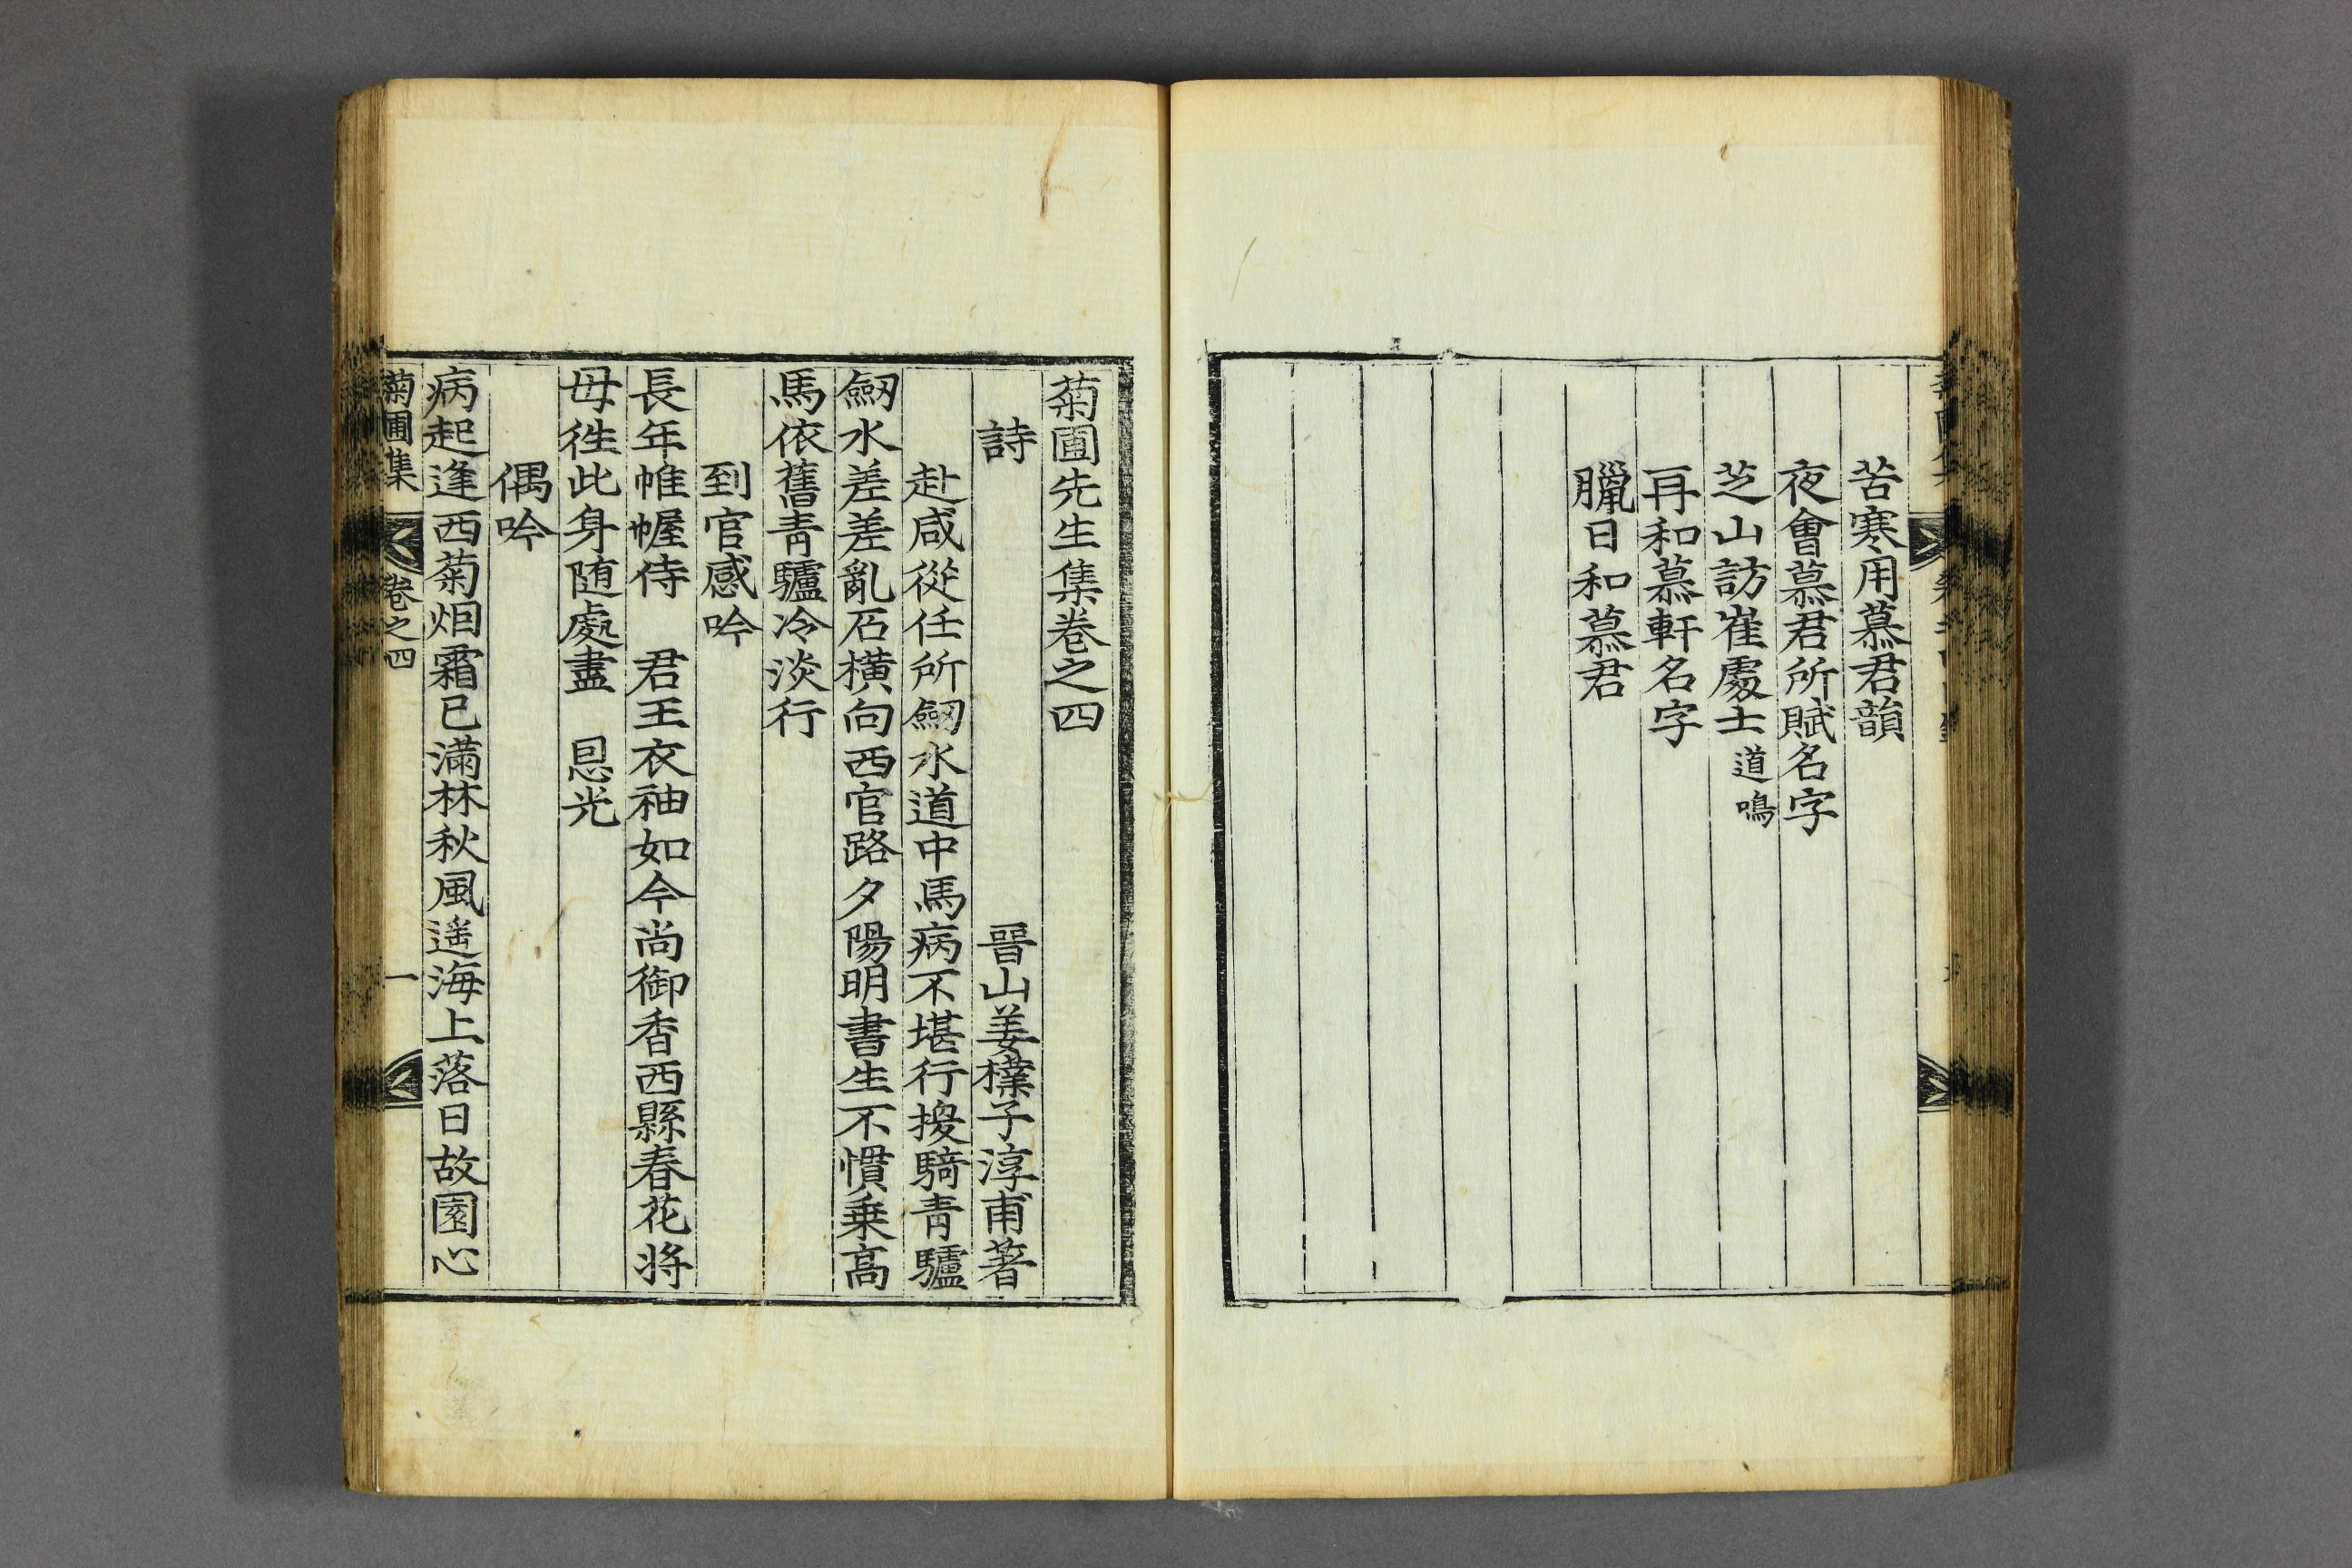 苦寒用慕君韻
夜會慕君所賦名字
芝山訪崔處士道鳴
再和慕軒名字
臘日和慕君
菊圃先生集卷之四
詩 晉山姜樸子淳甫著
赴咸從任所劒水道中馬病不堪行換騎青驢
劒水差差亂石橫向西官路夕陽明書生不慣乗高
馬依舊青驢冷淡行
到官感吟
長年帷幄侍 君王衣袖如今尚御香西縣春花将
母徃此身随處盡 恩光
偶吟
病起逢西菊烟霜已滿林秋風遥海上落日故園心
菊圃集 卷之四 一